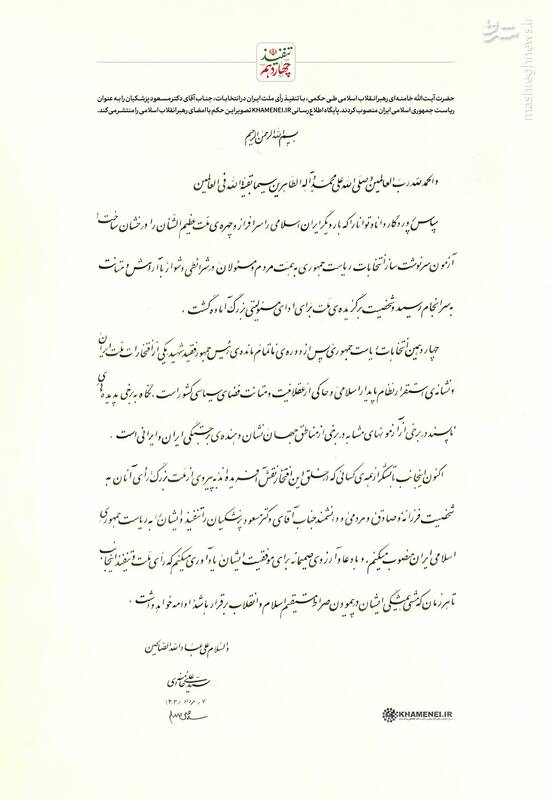 تنفیذ
چهاردهم
حضرت آیت‌الله خامنه‌ای رهبر انقلاب اسلامی طی حکمی، با تنفیذ رأی ملت ایران در انتخابات، جناب آقای دکتر مسعود پزشکیان را به عنوان
ریاست جمهوری اسلامی ایران منصوب کردند. پایگاه اطلاع رسانی KHAMENEI.IR تصویر این حکم با امضای رهبر انقلاب اسلامی را منتشر می‌کند.
بسم‌الله‌الرحمن‌الرحیم
والحمدلله رب العالمین و صلی الله علی محمد و آله الطاهرین سیما بقیةالله فی العالمین
سپاس پروردگار دانا و توانا را که بار دیگر ایران اسلامی را سرافراز و چهره‌ی ملت عظیم الشأن را درخشان ساخت؛
آزمون سرنوشت ساز انتخابات ریاست جمهوری به همت مردم و مسئولان در شرائطی دشوار با آرامش و متانت
به سرانجام رسید و شخصیت برگزیده‌ی ملت برای ادای مسئولیتی بزرگ آماده گشت.
چهاردهمین انتخابات ریاست جمهوری پس از دوره‌ی ناتمام مانده‌ی رئیس جمهور فقید شهید، یکی از افتخارات ملت ایران
و نشانه‌ی استقرار نظام پایدار اسلامی و حاکی از عقلانیت و متانت فضای سیاسی کشور است. نگاه به برخی پدیده‌های
ناپسند در برخی از آزمونهای مشابه در برخی از مناطق جهان نشان دهنده‌ی برجستگی ایران و ایرانی است.
اکنون اینجانب با تشکر از همه‌ی کسانی که در خلق این افتخار نقش آفریده‌اند به پیروی از ملت بزرگ، رأی آنان به
شخصیت فرزانه و صادق و مردمی و دانشمند جناب آقای دکتر مسعود پزشکیان را تنفیذ و ایشان را به ریاست جمهوری
اسلامی ایران منصوب میکنم. و با دعا و آرزوی صمیمانه برای موفقیت ایشان یادآوری میکنم که رأی ملت و تنفیذ اینجانب
تا هر زمان که مشی همیشگی ایشان در پیمودن صراط مستقیم اسلام و انقلاب برقرار باشد ادامه خواهد داشت.
والسلام علی عباد الله الصالحین
سیدعلی خامنه‌ای
۷ مرداد ۱۴۰۳
KHAMENEI.IR
مشرق
mashreghnews.ir